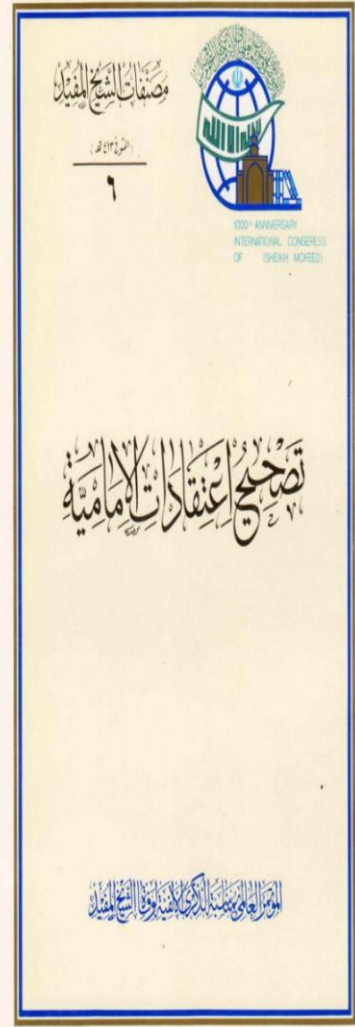 مصنفات الشيخ المفيد
(المتوفى ٤١٣ هـ)
٦
1000th ANNIVERSARY
INTERNATIONAL CONGERESS
OF (SHEIKH MOFEED)
تَصْحِيحُ اعْتِقَادَاتِ الإِمَامِيَّةِ
المؤتمر العالمي بمناسبة الذكرى الألفية لوفاة الشيخ المفيد